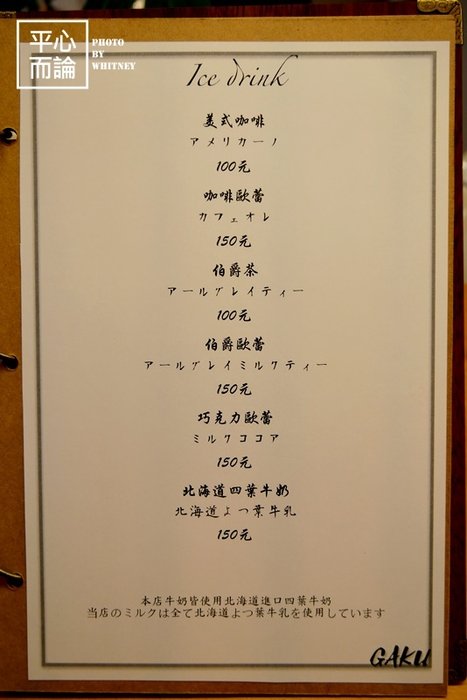 平心
而論
PHOTO
BY
WHITNEY
Ice drink
美式咖啡
アメリカーノ
100元
咖啡歐蕾
カフェオレ
150元
伯爵茶
アールグレイティー
100元
伯爵歐蕾
アールグレイミルクティー
150元
巧克力歐蕾
ミルクココア
150元
北海道四葉牛奶
北海道よつ葉牛乳
150元
本店牛奶皆使用北海道進口四葉牛奶
当店のミルクは全て北海道よつ葉牛乳を使用しています
GAKU